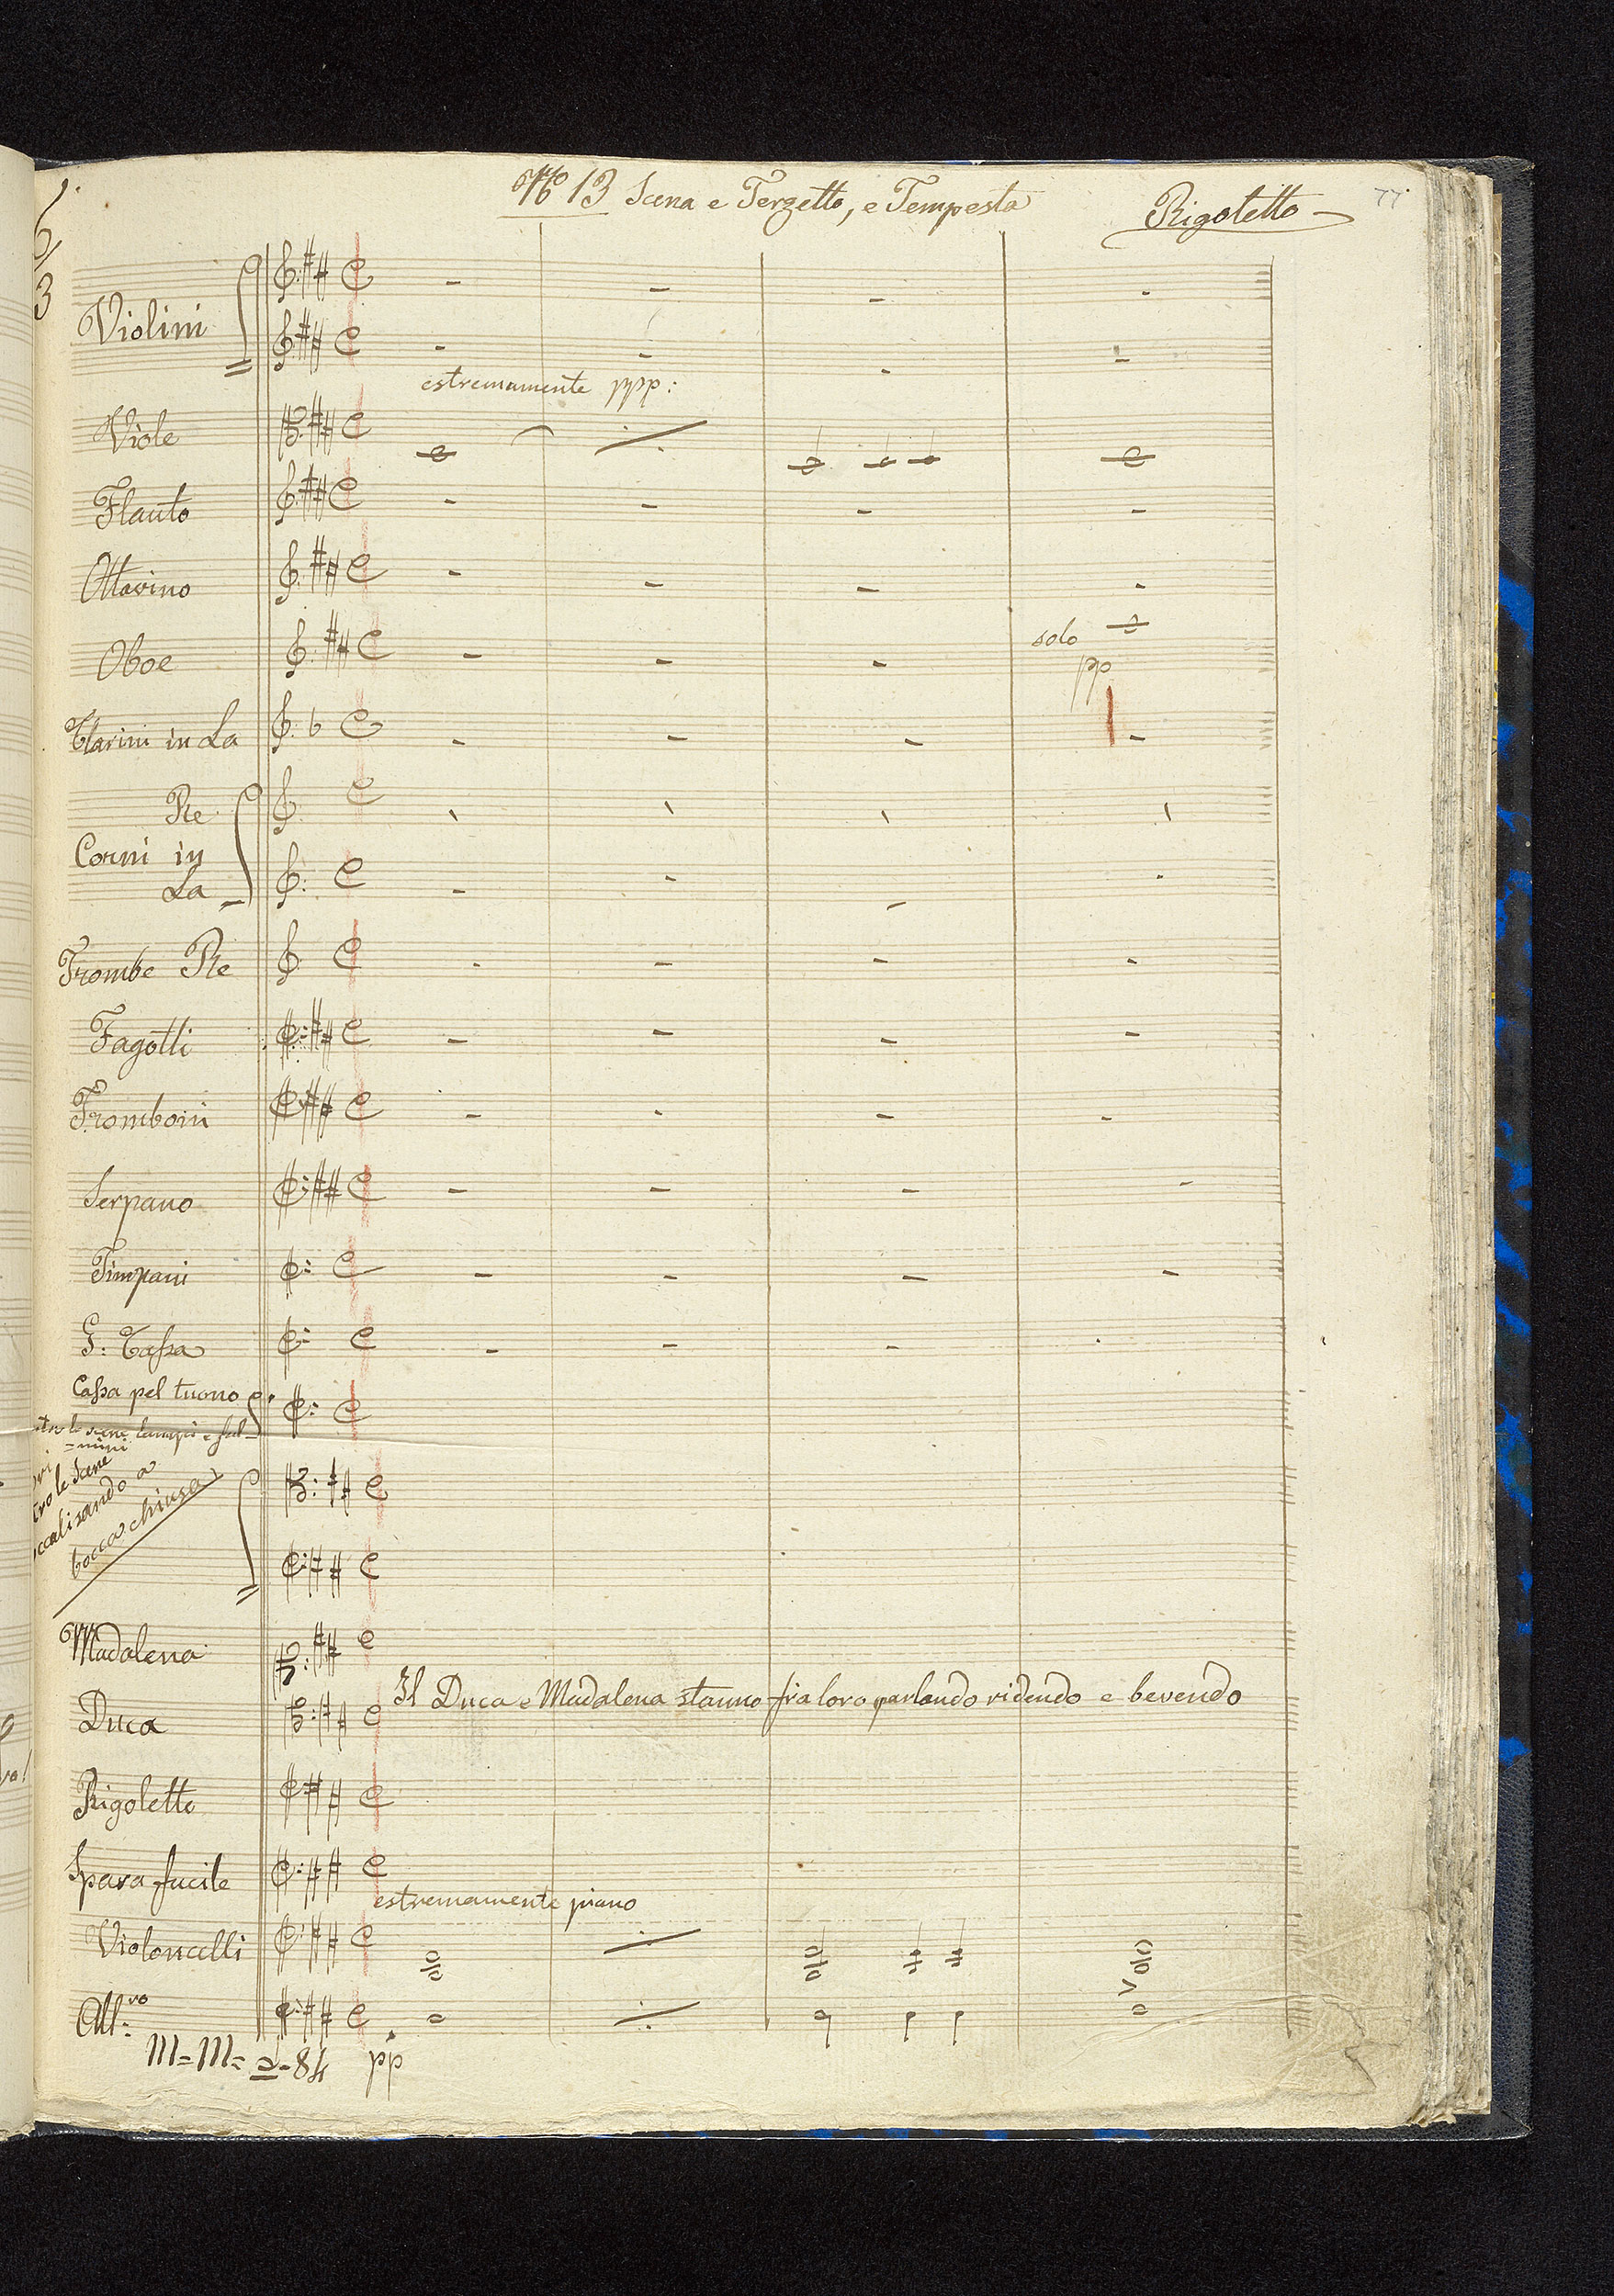 No 13 Scena e Terzetto, e Tempesta
Rigoletto
77
6/
3
Violini
estremamente ppp:
Viole
Flauto
Ottavino
Oboe
solo
pp
Clarini in La
Re
Corni in
La
Trombe Re
Fagotti
Tromboni
Serpano
Timpani
G: Cassa
Cassa pel tuono
le scene lampi e ful=
=mini
le Scene
a
bocca chiusa
Madalena
Il Duca e Madalena stanno fra loro parlando ridendo e bevendo
Duca
Rigoletto
Sparafucile
estremamente piano
Violoncelli
All:vo
M=M= 84 pp